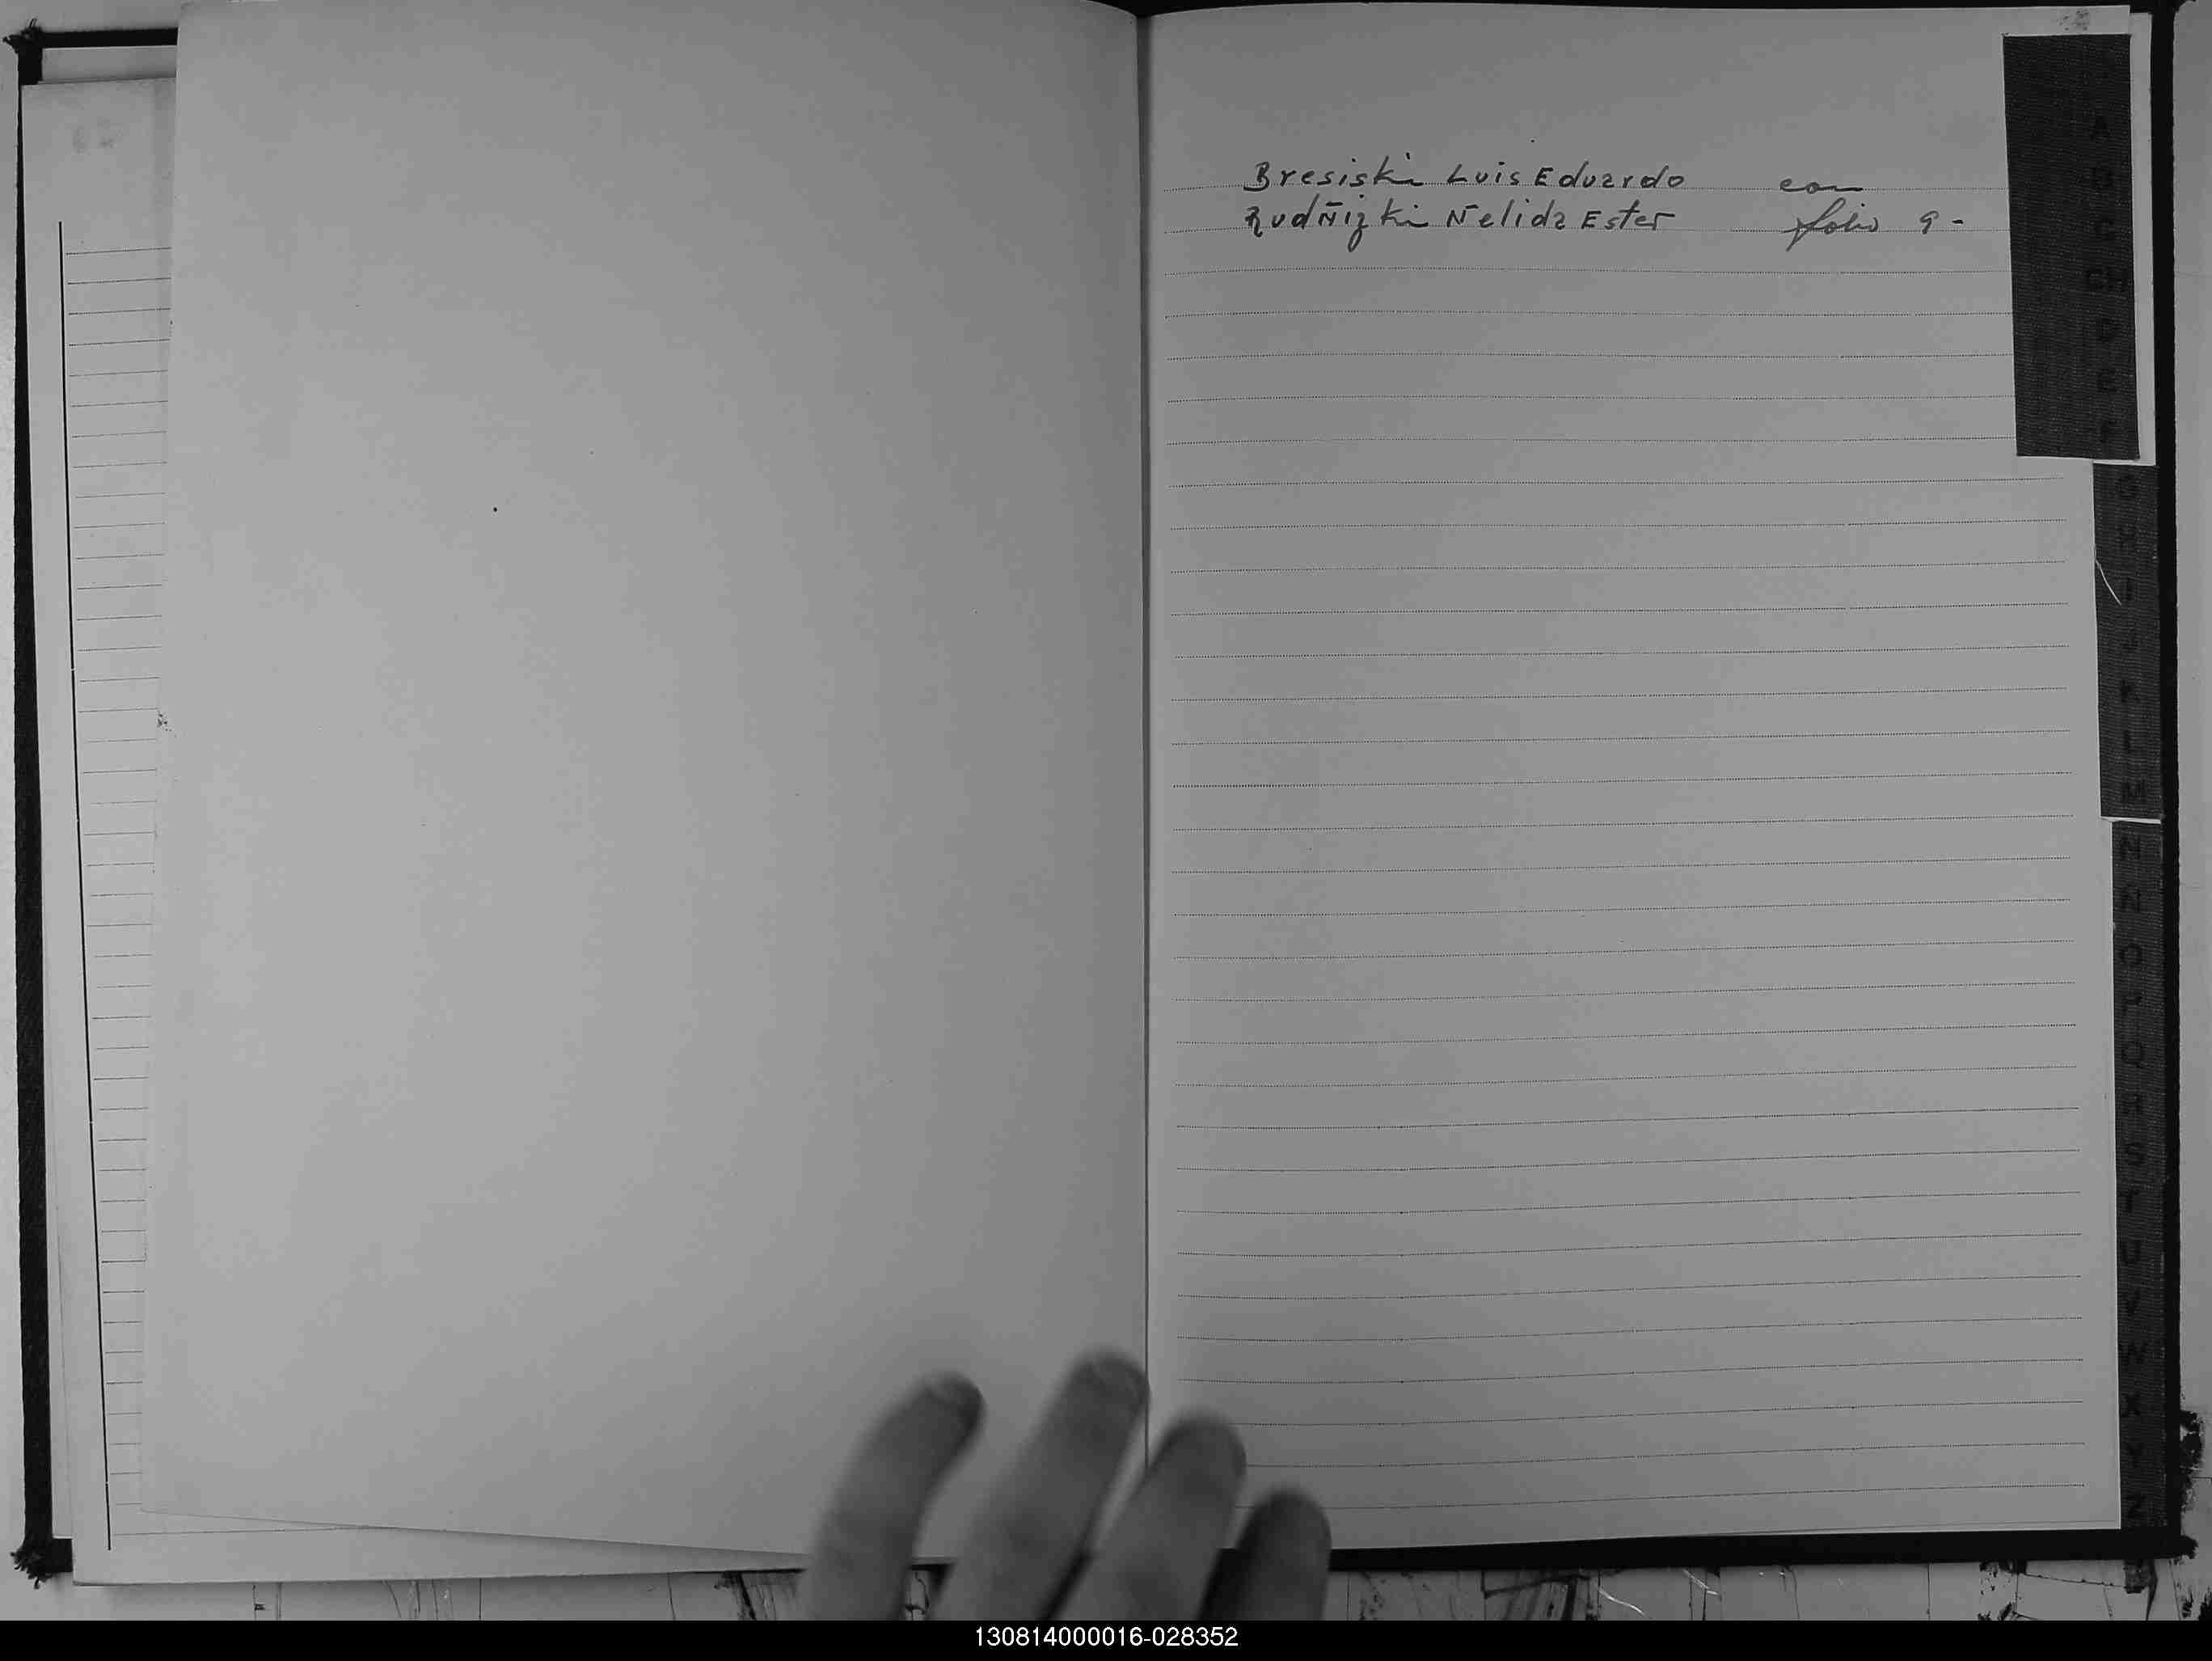 Bresiski Luis Eduardo con
Rudñizki Nelida Ester folio 9-
A
B
C
CH
D
E
F
G
H
I
J
K
L
M
N
Ñ
O
P
Q
R
S
T
U
V
W
X
Y
Z
130814000016-028352